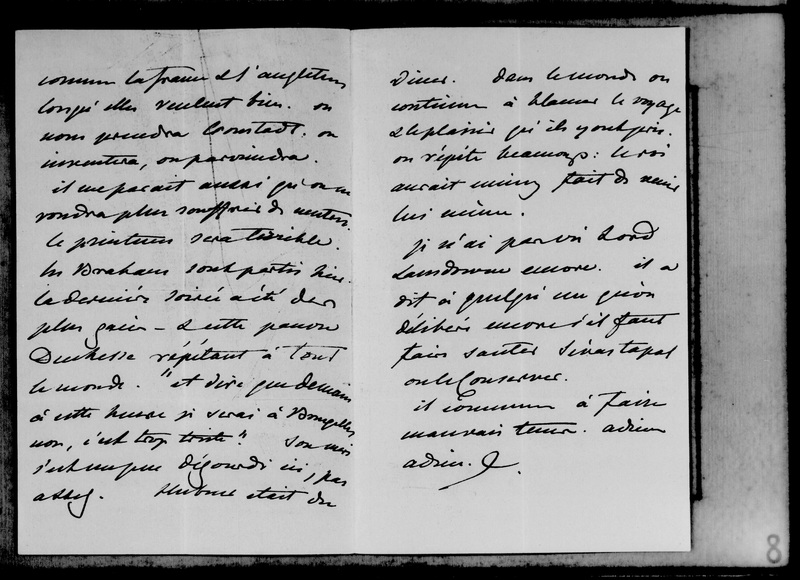 comme la france & l'angleterre
lorsqu'elles veulent bien. on
nous prendra Cronstadt. on
inventera, on parviendra.
il me parait aussi qu'on ne
voudra plus souffrir de neutres.
le printems sera terrible.
les Brabant sont partis hier.
la dernière soirée a été des
plus gaies – & cette pauvre
Duchesse répétant à tout
le monde. "et dire que demain
à cette heure je serai à Bruxelles
non, c'est trop triste." Son mari
s'est un peu dégourdi ici, pas
assez. Hubner était du
Diner. dans le monde on
continue à blamer le voyage
& le plaisir qu'ils y ont pris.
on répète beaucoup: le roi
aurait mieux fait de venir
lui même.
je n'ai pas vu Lord
Lansdowne encore. il a
dit à quelqu'un qu'on
délibère encore s'il faut
faire sauter Sévastopol
ou le Conserver.
il commence à faire
mauvais tems. adieu
adieu.
8